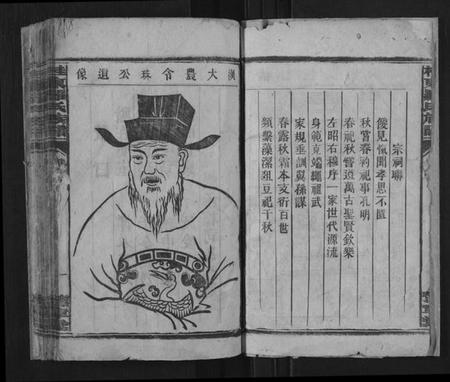 宗祠聯
愾見愾聞孝思不匱
秋嘗春礿祀事孔明
春祀秋嘗遵萬古聖賢飲樂
左昭右穆序一家世代源流
身範克端繩祖武
家規垂訓翼孫謀
春露秋霜本支衍百世
蘋蘩藻潔俎豆祀千秋
漢大農令珠公遺像